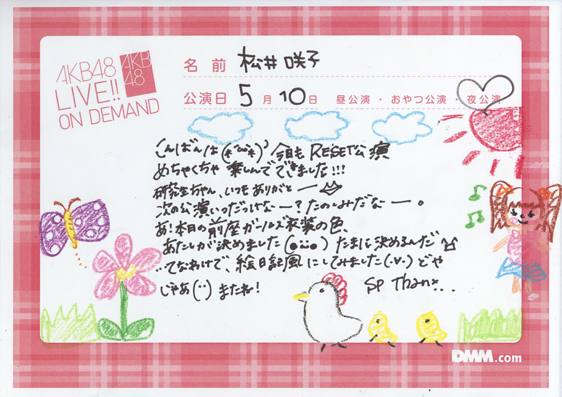 AKB48
LIVE!!
ON DEMAND
AKB
48
名前 松井 咲子
公演日 5月10日 昼公演・おやつ公演・夜公演
こんばんは(*^^*)今日も RESET公演
めちゃくちゃ楽しんでできました!!!
研究生ちゃん、いつもありがとー
次の公演いつだっけなー?たのしみだなー。
あ!本日の前座ガールズ衣装の色、
あたしが決めました たまに決めるんだ
…てなわけで、絵日記風にしてみました(・∀・)どや
じゃあ(・・)またね!
SP Thanx...
DMM.com